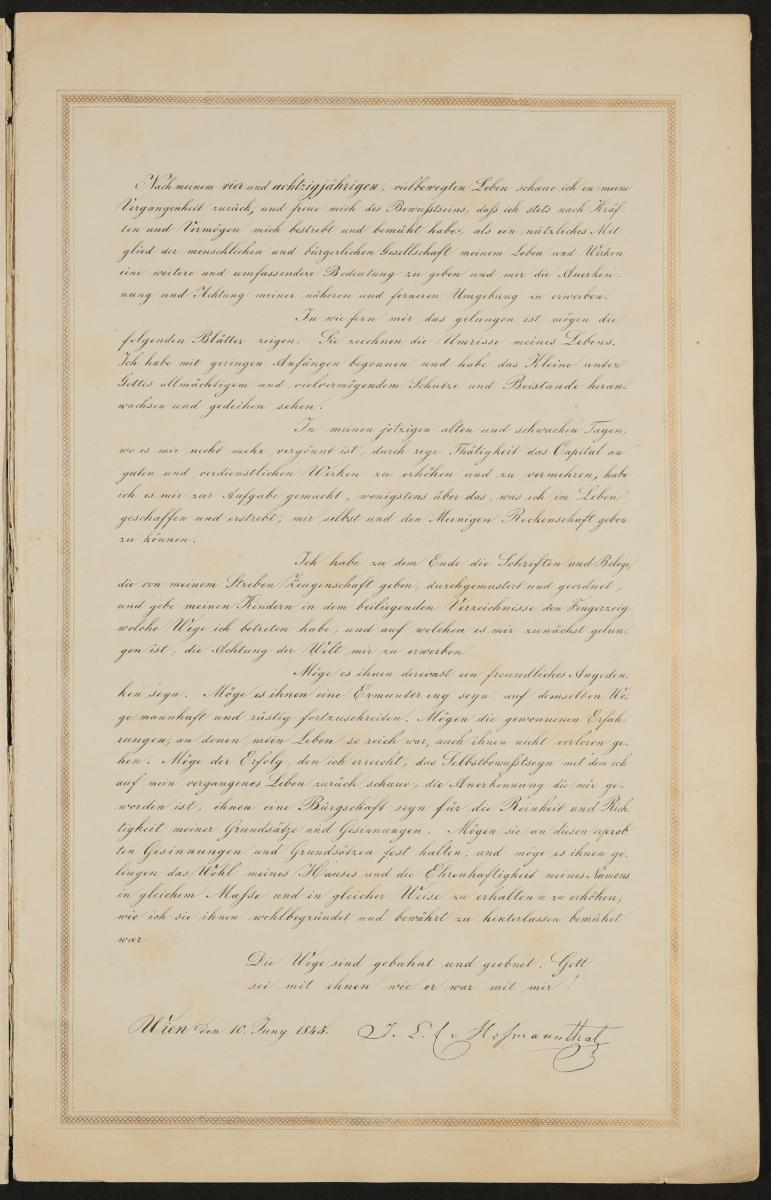 Nach meinem vier und achtzigjährigen, vielbewegten Leben schaue ich in meine
Vergangenheit zurück, und freue mich des Bewußtseins, daß ich stets nach Kräf-
ten und Vermögen mich bestrebt und bemüht habe, als ein nützliches Mit-
glied der menschlichen und bürgerlichen Gesellschaft meinem Leben und Wirken
eine weitere und umfassendere Bedeutung zu geben und mir die Anerken-
nung und Achtung meiner näheren und ferneren Umgebung zu erwerben.
In wie fern mir das gelungen ist mögen die
folgenden Blätter zeigen. Sie zeichnen die Umrisse meines Lebens.
Ich habe mit geringen Anfängen begonnen und habe das Kleine unter
Gottes allmächtigem und vielvermögendem Schutze und Beistande heran-
wachsen und gedeihen sehen.
In meinen jetzigen alten und schwachen Tagen,
wo es mir nicht mehr vergönnt ist, durch rege Thätigkeit das Capital an
guten und verdienstlichen Werken zu erhöhen und zu vermehren, habe
ich es mir zur Aufgabe gemacht, wenigstens über das, was ich im Leben
geschaffen und erstrebt, mir selbst und den Meinigen Rechenschaft geben
zu können.
Ich habe zu dem Ende die Schriften und Belege,
die von meinem Streben Zeugenschaft geben, durchgemustert und geordnet,
und gebe meinen Kindern in dem beiliegenden Verzeichnisse den Fingerzeig
welche Wege ich betreten habe, und auf welchen es mir zunächst gelun-
gen ist, die Achtung der Welt mir zu erwerben
Möge es ihnen dereinst ein freundliches Angeden-
ken seyn. Möge es ihnen eine Ermunterung seyn, auf demselben We-
ge mannhaft und rüstig fortzuschreiten. Mögen die gewonnenen Erfah-
rungen, an denen mein Leben so reich war, auch ihnen nicht verloren ge-
hen. Möge der Erfolg, den ich erreicht, das Selbstbewußtseyn mit dem ich
auf mein vergangenes Leben zurück schaue, die Anerkennung die mir ge-
worden ist, ihnen eine Bürgschaft seyn für die Reinheit und Rich-
tigkeit meiner Grundsätze und Gesinnungen. Mögen sie an diesen erprob-
ten Gesinnungen und Grundsätzen fest halten, und möge es ihnen ge-
lingen das Wohl meines Hauses und die Ehrenhaftigkeit meines Namens
in gleichem Maße und in gleicher Weise zu erhalten u. zu erhöhen,
wie ich sie ihnen wohlbegründet und bewährt zu hinterlassen bemühet
war
Die Wege sind gebahnt und geebnet. Gott
sei mit ihnen wie er war mit mir!
Wien den 10. Juny 1845. I. L. E. v Hofmannsthal